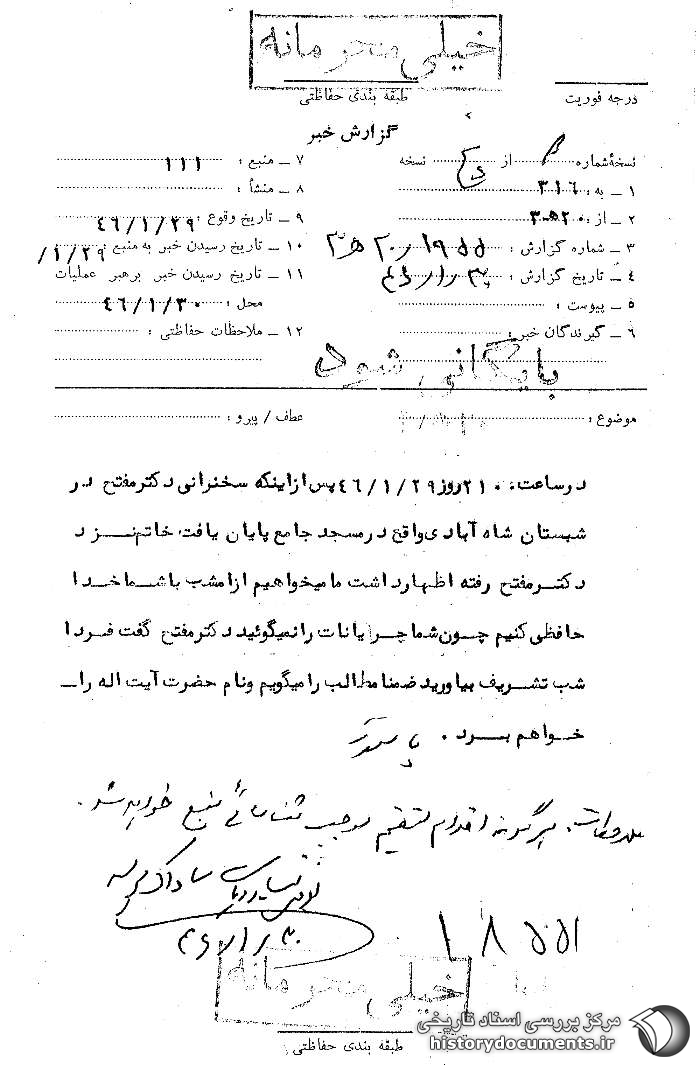 خیلی محرمانه
طبقه بندی حفاظتی
درجه فوریت
گزارش خبر
نسخهٔ شماره از نسخه
۱ ـ به : ۳۱۶
۲ ـ از : ۲۰ه۳
۳ ـ شماره گزارش : ۱۹۵۵ / ۲۰ ه ۳
۴ ـ تاریخ گزارش : ۴۶/۱/۳۰
۵ ـ پیوست :
۶ ـ گیرندگان خبر :
۷ ـ منبع : ۱۱۱
۸ ـ منشأ :
۹ ـ تاریخ وقوع : ۴۶/۱/۲۹
۱۰ ـ تاریخ رسیدن خبر به منبع : /۱/۲۹
۱۱ ـ تاریخ رسیدن خبر برهبر عملیات
محل : ۴۶/۱/۳۰
۱۲ ـ ملاحظات حفاظتی :
بایگانی شود
موضوع :
عطف / پیرو :
درساعت ۲۱۰۰ روز ۴۶/۱/۲۹ پس ازاینکه سخنرانی دکترمفتح در
شبستان شاه آبادی واقع درمسجد جامع پایان یافت خاتم نزد
دکترمفتح رفته اظهارداشت ما میخواهیم ازامشب باشما خدا
حافظی کنیم چون شما جریانات رانمیگوئید دکترمفتح گفت فردا
شب تشریف بیاورید ضمنا مطالب رامیگویم ونام حضرت آیت اله راـ
خواهم برد .
ملاحظات. هرگونه اقدام مستقیم موجب شناسائی منبع خواهد شد.
ساواک
۴۶/۱/۳۰
۱۸۵۵۱
خیلی محرمانه
طبقه بندی حفاظتی
مرکز بررسی اسناد تاریخی
historydocuments.ir